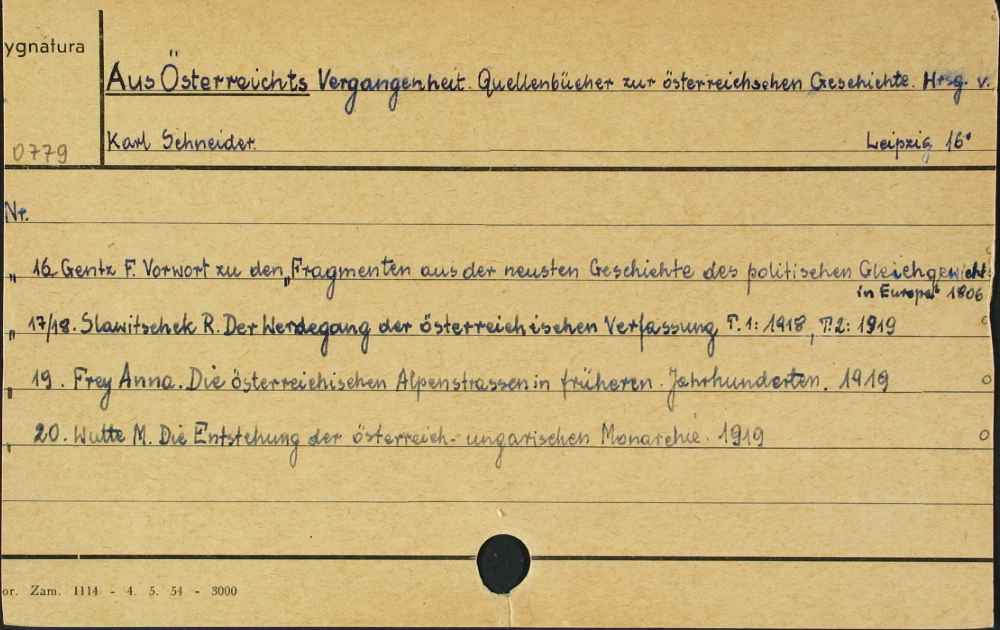 ygnatura
Aus Österreichts Vergangenheit. Quellenbücher zur österreichschen Geschichte. Hrsg. v.
Karl Schneider. Leipzig 16°
0779
Nr.
" 16. Gentz F. Vorwort zu den „Fragmenten aus der neusten Geschichte des politischen Gleichgewicht
in Europa" 1806
" 17/18. Slawitschek R. Der Werdegang der österreichischen Verfassung T.1: 1918, T.2: 1919
" 19. Frey Anna. Die österreichischen Alpenstrassen in früheren Jahrhunderten. 1919
" 20. Wutte M. Die Entstehung der österreich-ungarischen Monarchie. 1919
or. Zam. 1114 - 4. 5. 54 - 3000